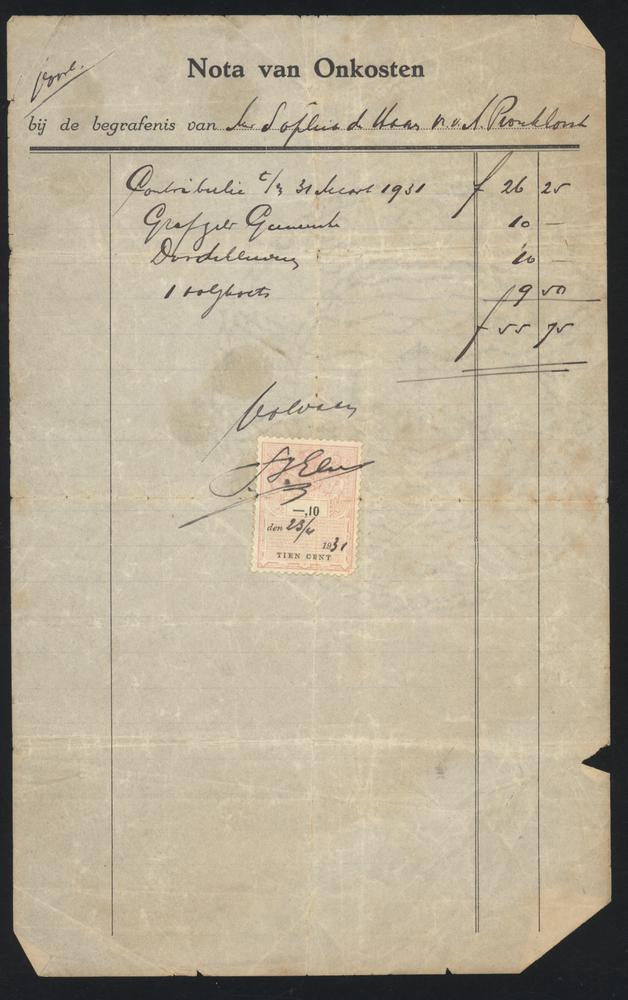 Voorl.
Nota van Onkosten
bij de begrafenis van Mw Sophia de Haas
Contributie t/m 31 Maart 1931 f 26 25
Grafgeld Gemeente 10 —
10 —
1 volgkoets 9 50
f 55 75
Voldaan
—,10
den 23/4
1931
TIEN CENT